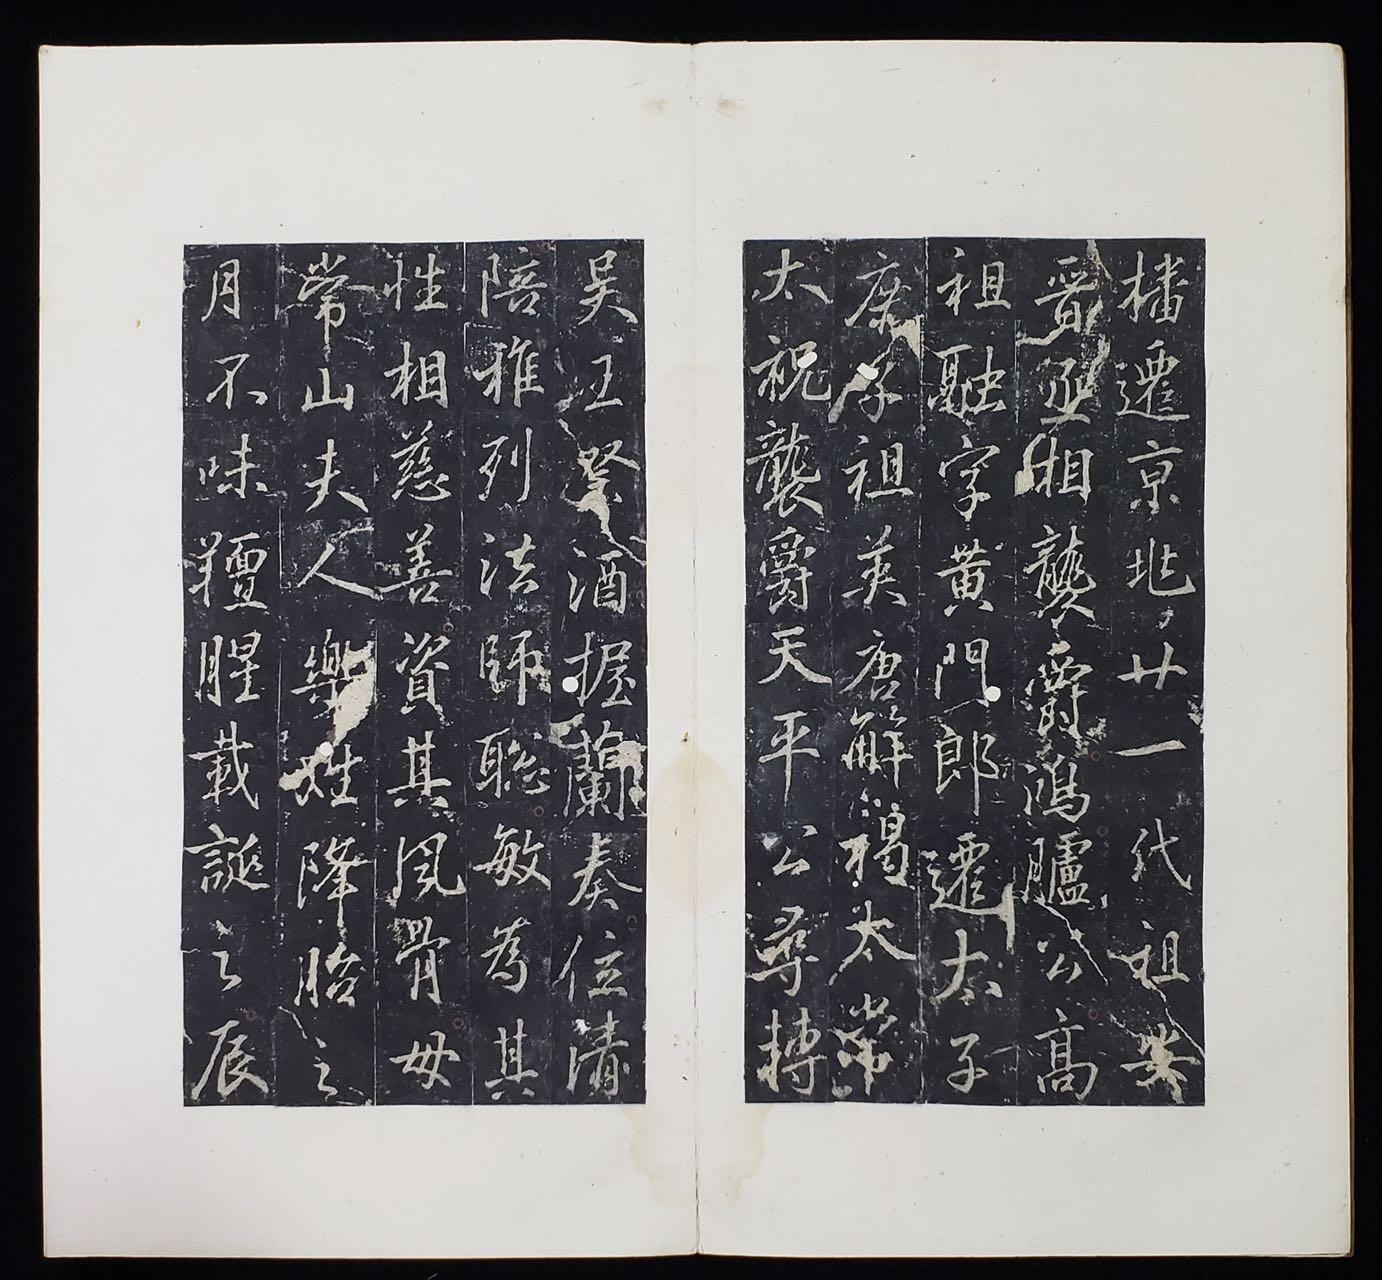 播遷京兆廿一代祖安
晉丞相襲爵鴻臚公高
祖融字黄門郎遷太子
庶子祖英唐解褐太常
太祝襲爵天平公尋轉
吴王祭酒握蘭奏位清
陪雅列法師聡敏為其
性相慈善資其風骨母
常山夫人樂姓降胎之
月不味羶腥載誕之辰